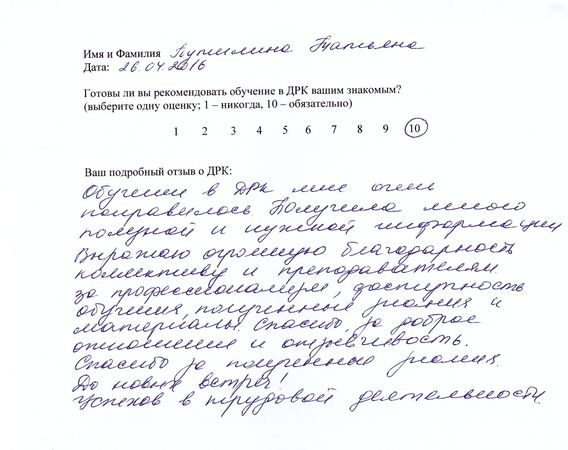 Имя и Фамилия Путилина Татьяна
Дата: 26.04.2016
Готовы ли вы рекомендовать обучение в ДРК вашим знакомым?
(выберите одну оценку; 1 – никогда, 10 – обязательно)
1 2 3 4 5 6 7 8 9 10
Ваш подробный отзыв о ДРК:
Обучении в ДРК мне очень
понравилось Получила много
полезной и нужной информации
Выражаю огромную благодарность
коллективу и преподавателям
за профессионализм, доступность
обучения, полученные знания и
материалы. Спасибо за доброе
отношение и отзывчивость.
Спасибо за полученные знания.
До новых встреч!
Успехов в трудовой деятельности.